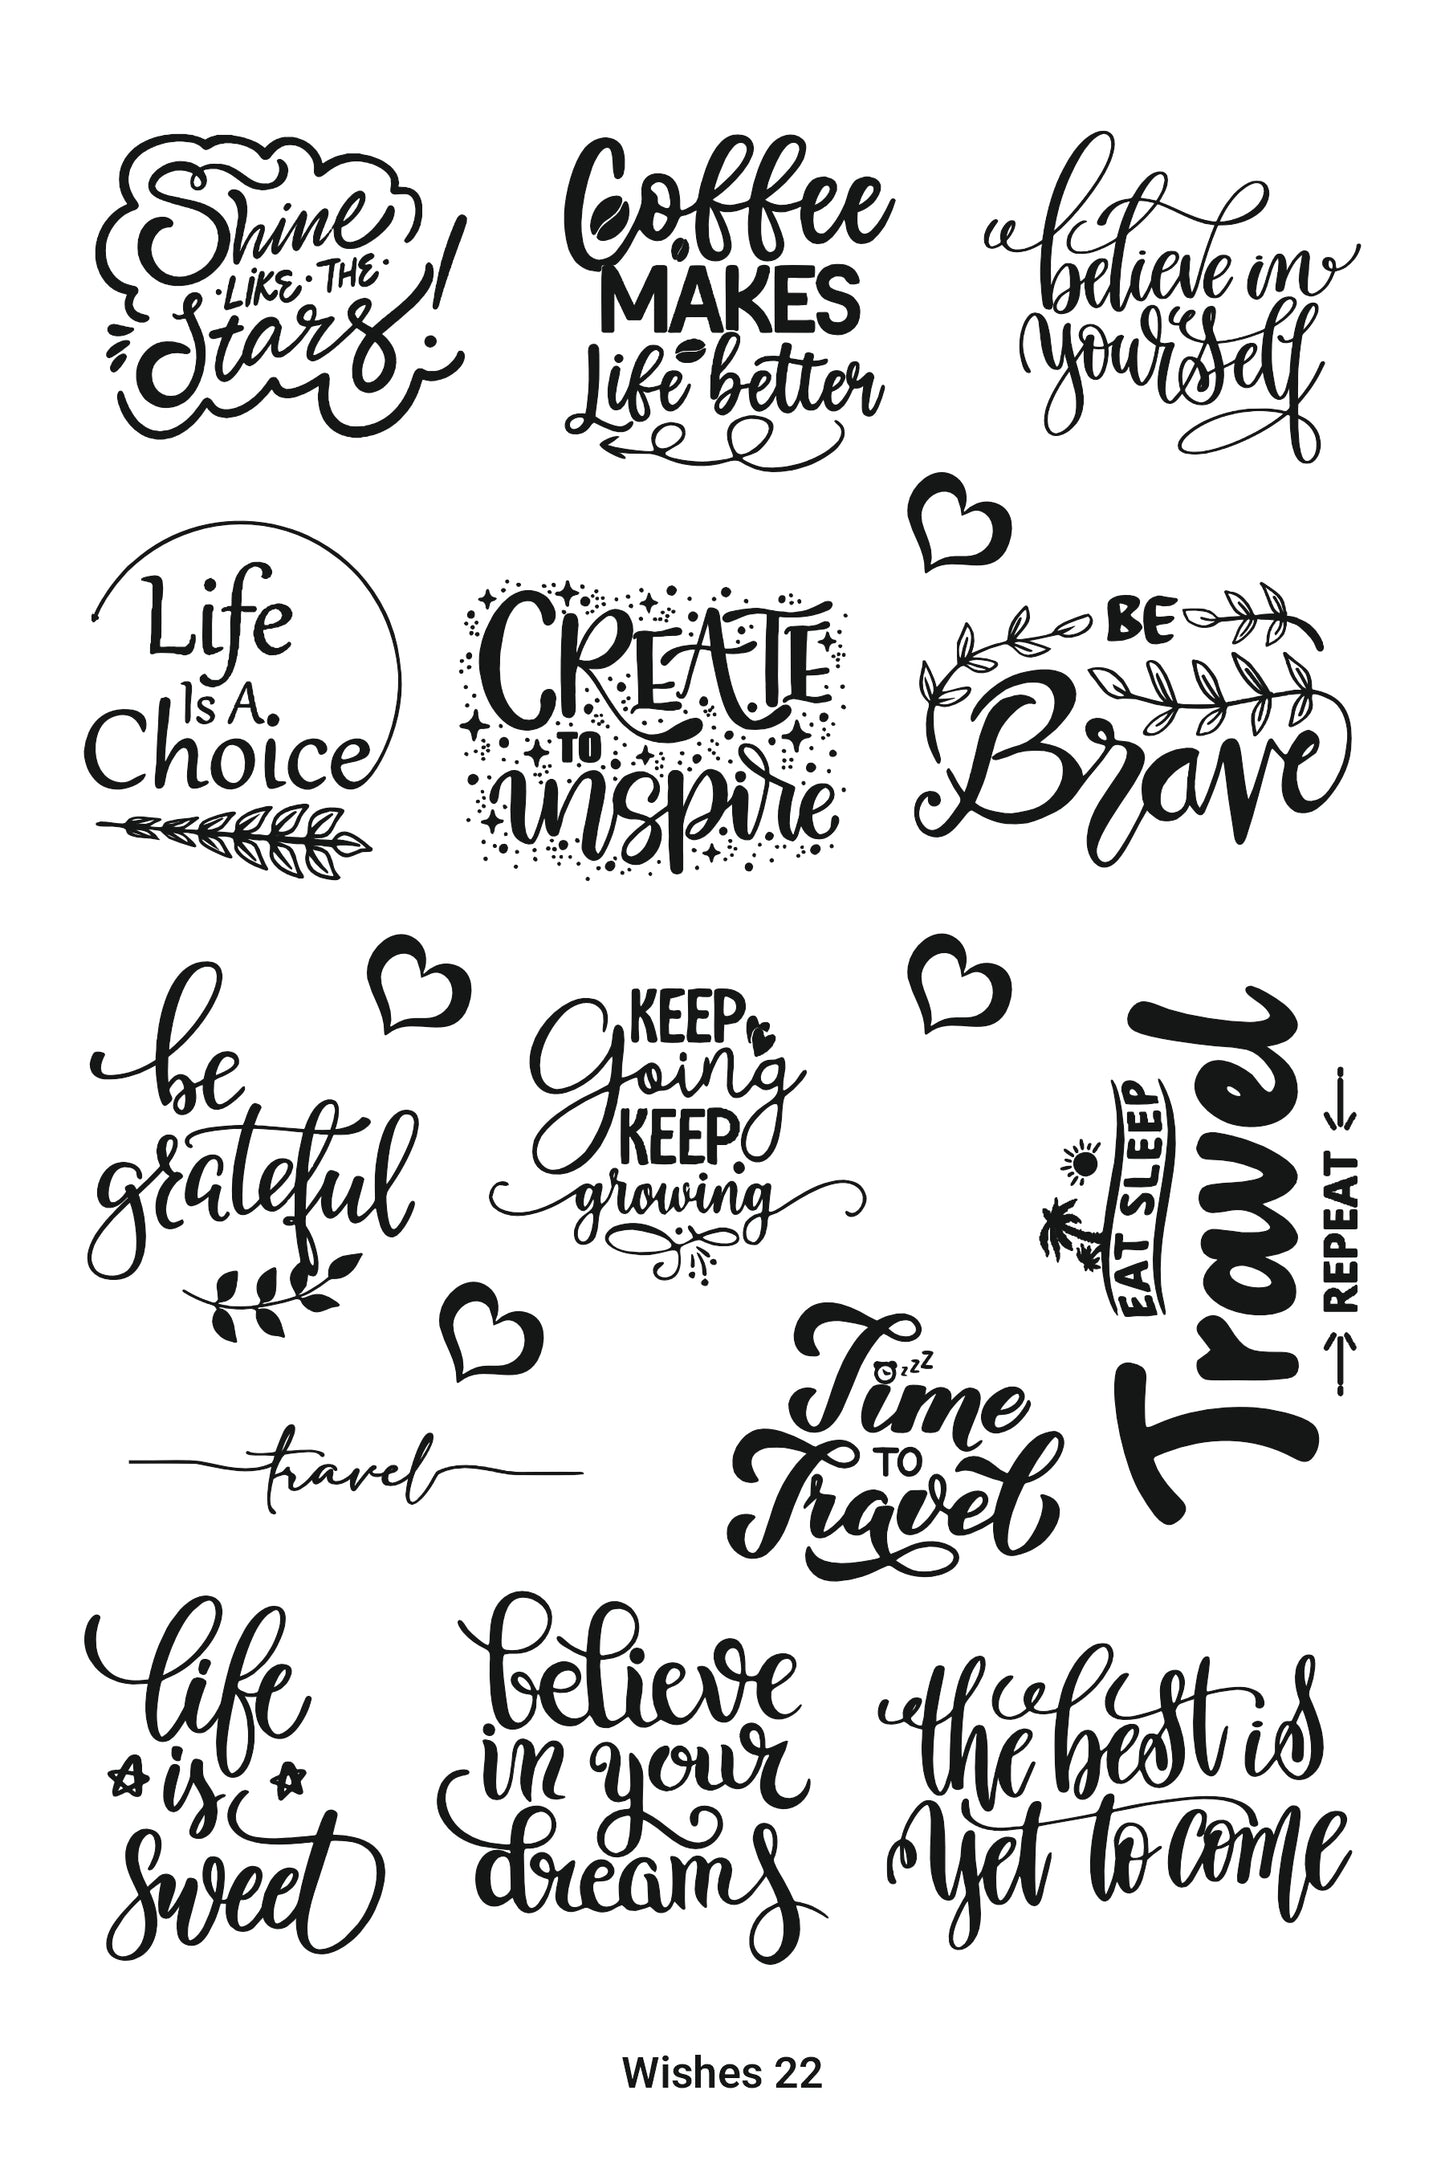 Shine
LIKE THE
Stars!
Coffee
MAKES
Life better
believe in
yourself
Life
Is A
Choice
CREATE
TO
inspire
BE
Brave
be
grateful
KEEP
Going
KEEP
growing
EAT SLEEP
Travel
REPEAT
travel
Time
zzz
TO
Travel
life
is
sweet
believe
in your
dreams
the best is
yet to come
Wishes 22